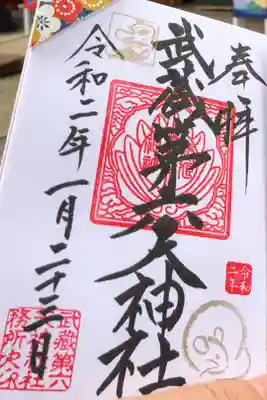 奉拝
武蔵第六天神社
令和二年一月二十三日
令和
二年
武蔵第六
天神社
務所之印